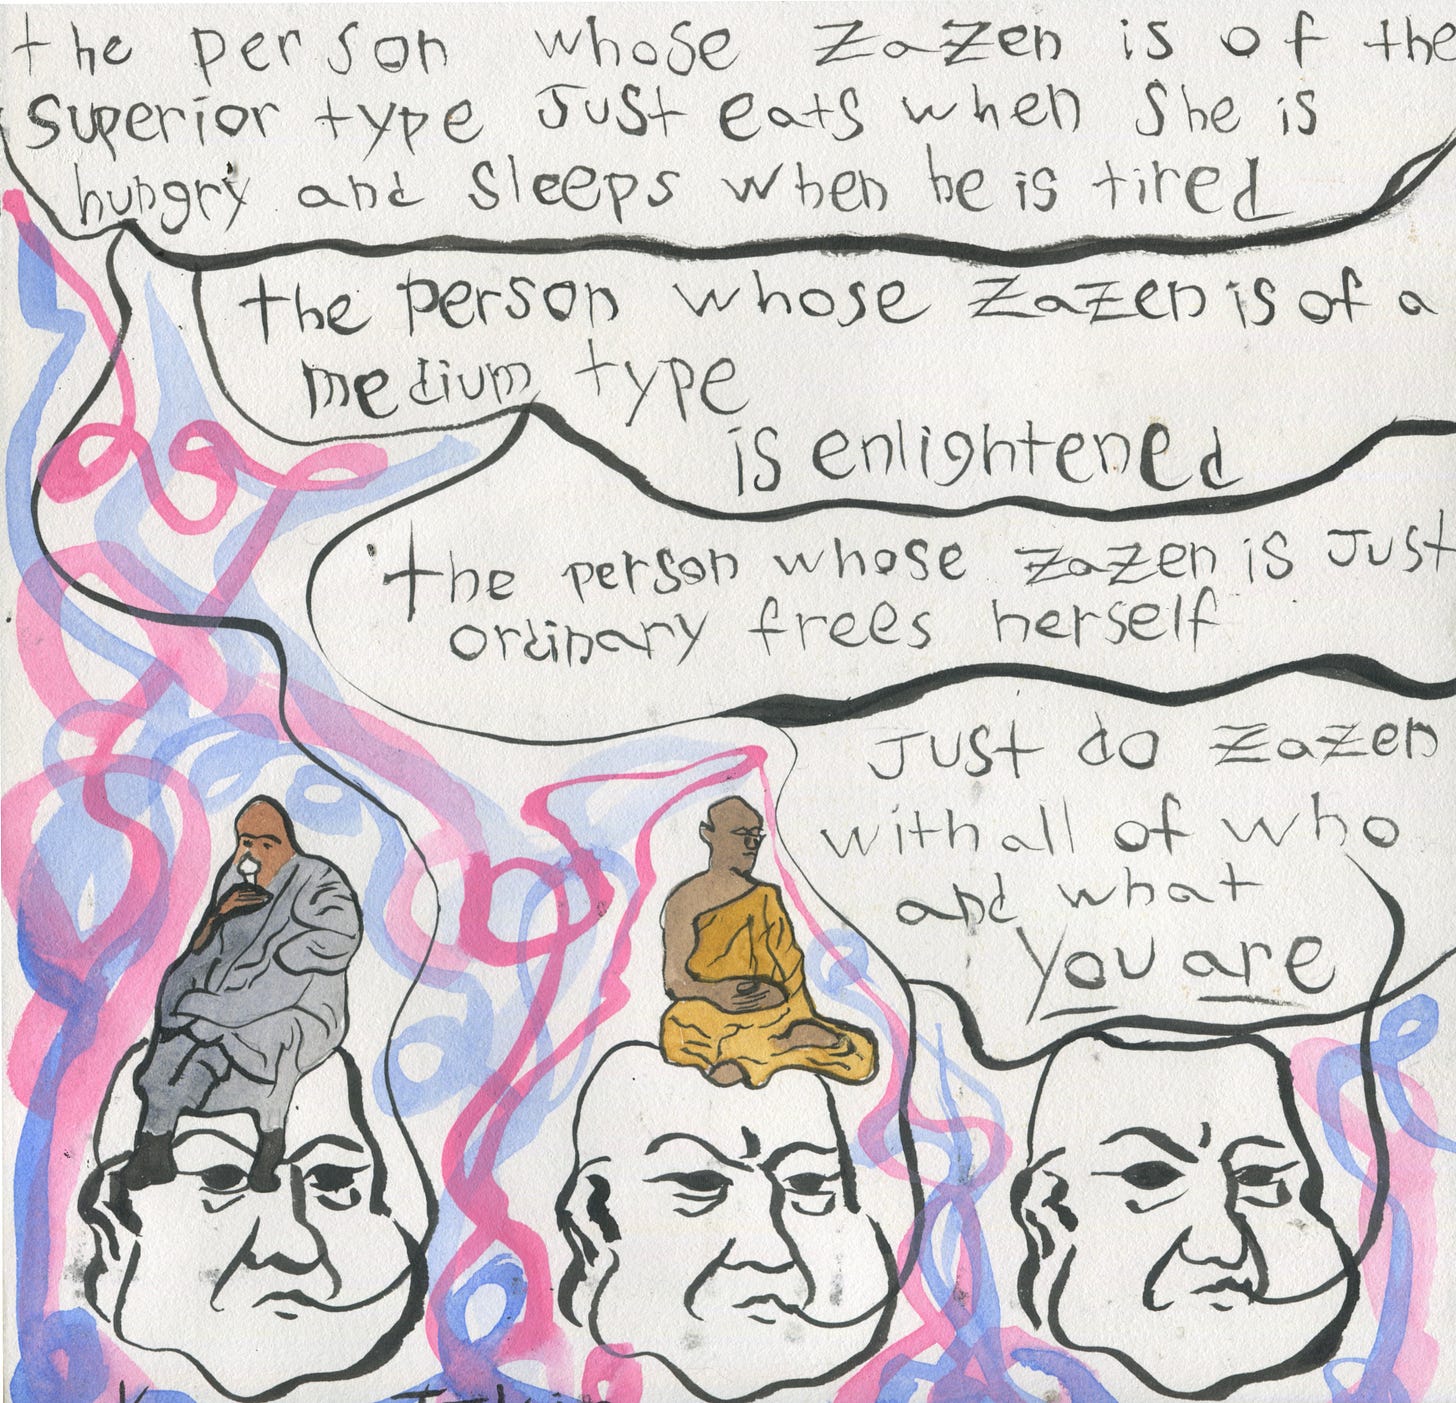 the person whose zazen is of the
superior type Just eats when she is
hungry and sleeps when he is tired
the person whose zazen is of a
medium type
is enlightened
the person whose zazen is Just
ordinary frees herself
Just do zazen
with all of who
and what
you are